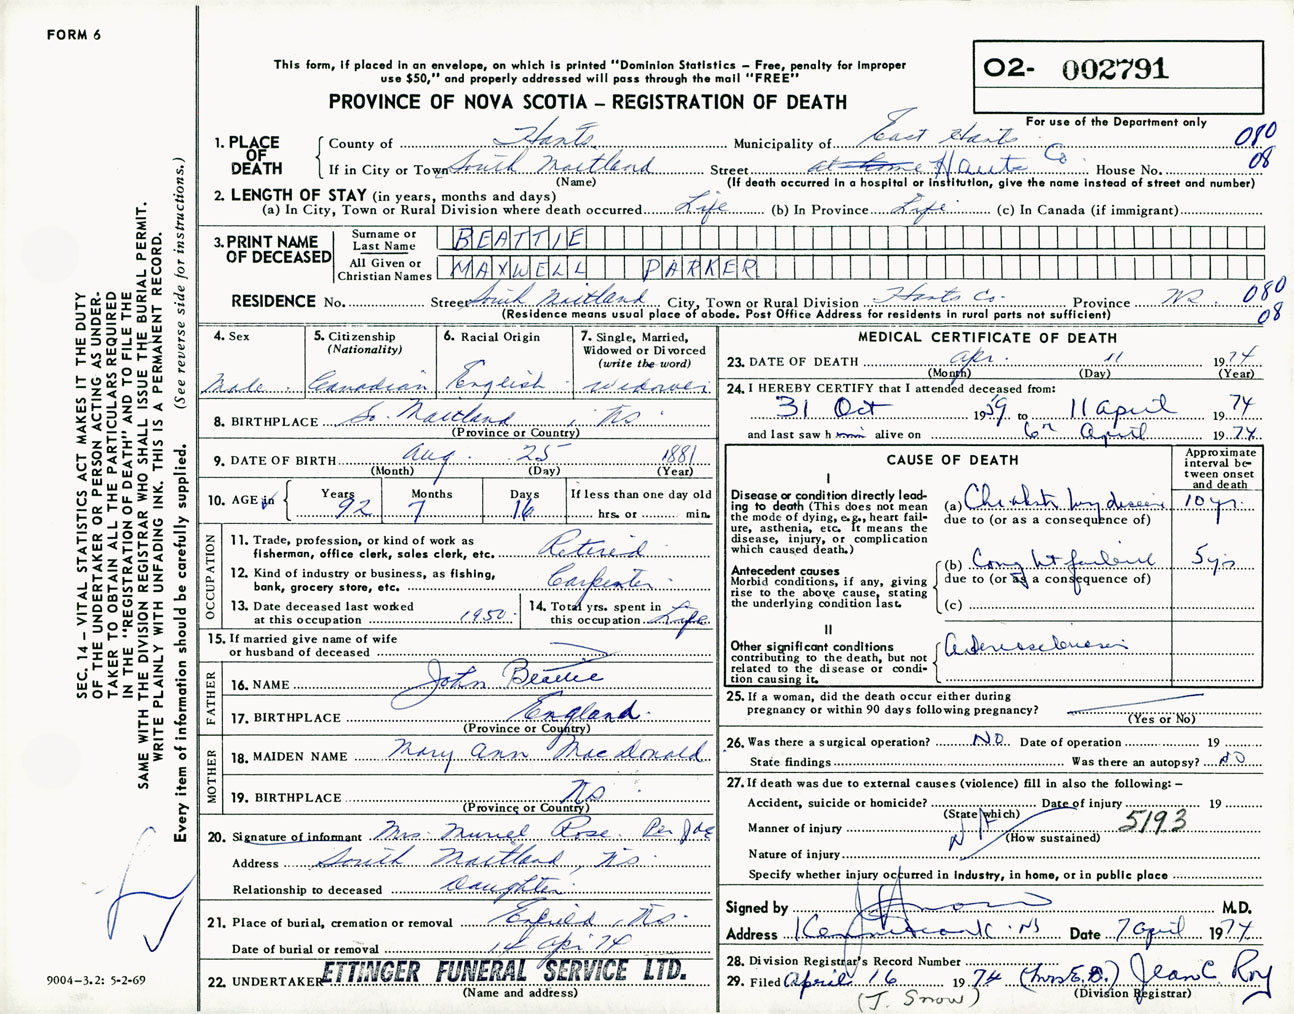 FORM 6
This form, if placed in an envelope, on which is printed "Dominion Statistics – Free, penalty for improper
use $50," and properly addressed will pass through the mail "FREE"
PROVINCE OF NOVA SCOTIA – REGISTRATION OF DEATH
02- 002791
For use of the Department only
1. PLACE OF DEATH
County of Hants Municipality of East Hants 080
If in City or Town South Maitland Street at home Hants Co House No. 08
(Name) (If death occurred in a hospital or institution, give the name instead of street and number)
2. LENGTH OF STAY (in years, months and days)
(a) In City, Town or Rural Division where death occurred Life (b) In Province Life (c) In Canada (if immigrant)
3. PRINT NAME OF DECEASED
Surname or Last Name BEATTIE
All Given or Christian Names MAXWELL PARKER
RESIDENCE No. Street South Maitland City, Town or Rural Division Hants Co. Province NS 080
(Residence means usual place of abode. Post Office Address for residents in rural parts not sufficient) 08
4. Sex
Male
5. Citizenship
(Nationality)
Canadian
6. Racial Origin
English
7. Single, Married,
Widowed or Divorced
(write the word)
widower
8. BIRTHPLACE So. Maitland, NS
(Province or Country)
9. DATE OF BIRTH Aug. 25 1881
(Month) (Day) (Year)
10. AGE in Years 92 Months 7 Days 16 If less than one day old
hrs. or min.
OCCUPATION
11. Trade, profession, or kind of work as
fisherman, office clerk, sales clerk, etc. Retired
12. Kind of industry or business, as fishing,
bank, grocery store, etc. Carpenter
13. Date deceased last worked
at this occupation 1950
14. Total yrs. spent in
this occupation Life
15. If married give name of wife
or husband of deceased
FATHER
16. NAME John Beattie
17. BIRTHPLACE England
(Province or Country)
MOTHER
18. MAIDEN NAME Mary Ann MacDonald
19. BIRTHPLACE NS
(Province or Country)
20. Signature of informant Mrs. Muriel Rose. Per
Address South Maitland, NS.
Relationship to deceased Daughter
21. Place of burial, cremation or removal Enfield, NS.
Date of burial or removal 14 Apr 74
22. UNDERTAKER ETTINGER FUNERAL SERVICE LTD.
(Name and address)
MEDICAL CERTIFICATE OF DEATH
23. DATE OF DEATH Apr. 11 1974
(Month) (Day) (Year)
24. I HEREBY CERTIFY that I attended deceased from:
31 Oct 1959 to 11 April 1974
and last saw him alive on 6th April 1974
CAUSE OF DEATH
Approximate
interval be-
tween onset
and death
I
Disease or condition directly lead-
ing to death (This does not mean
the mode of dying, e.g., heart fail-
ure, asthenia, etc. It means the
disease, injury, or complication
which caused death.)
(a) 10 yrs.
due to (or as a consequence of)
Antecedent causes
Morbid conditions, if any, giving
rise to the above cause, stating
the underlying condition last.
(b) Cong ht failure 5 yrs
due to (or as a consequence of)
(c)
II
Other significant conditions
contributing to the death, but not
related to the disease or condi-
tion causing it.
Arteriosclerosis
25. If a woman, did the death occur either during
pregnancy or within 90 days following pregnancy?
(Yes or No)
26. Was there a surgical operation? NO Date of operation 19
State findings Was there an autopsy? NO
27. If death was due to external causes (violence) fill in also the following: –
Accident, suicide or homicide? Date of injury 19
(State which)
Manner of injury N/A 5193
(How sustained)
Nature of injury
Specify whether injury occurred in industry, in home, or in public place
Signed by M.D.
Address Kennetcook NS Date 7 April 1974
28. Division Registrar's Record Number
29. Filed April 16 1974 (Mrs E.C.) Jean C Roy
(Division Registrar)
(J. Snow)
SEC. 14 – VITAL STATISTICS ACT MAKES IT THE DUTY
OF THE UNDERTAKER OR PERSON ACTING AS UNDER-
TAKER TO OBTAIN ALL THE PARTICULARS REQUIRED
IN THE "REGISTRATION OF DEATH" AND TO FILE THE
SAME WITH THE DIVISION REGISTRAR WHO SHALL ISSUE THE BURIAL PERMIT.
WRITE PLAINLY WITH UNFADING INK. THIS IS A PERMANENT RECORD.
Every item of information should be carefully supplied. (See reverse side for instructions.)
9004–3.2: 5-2-69